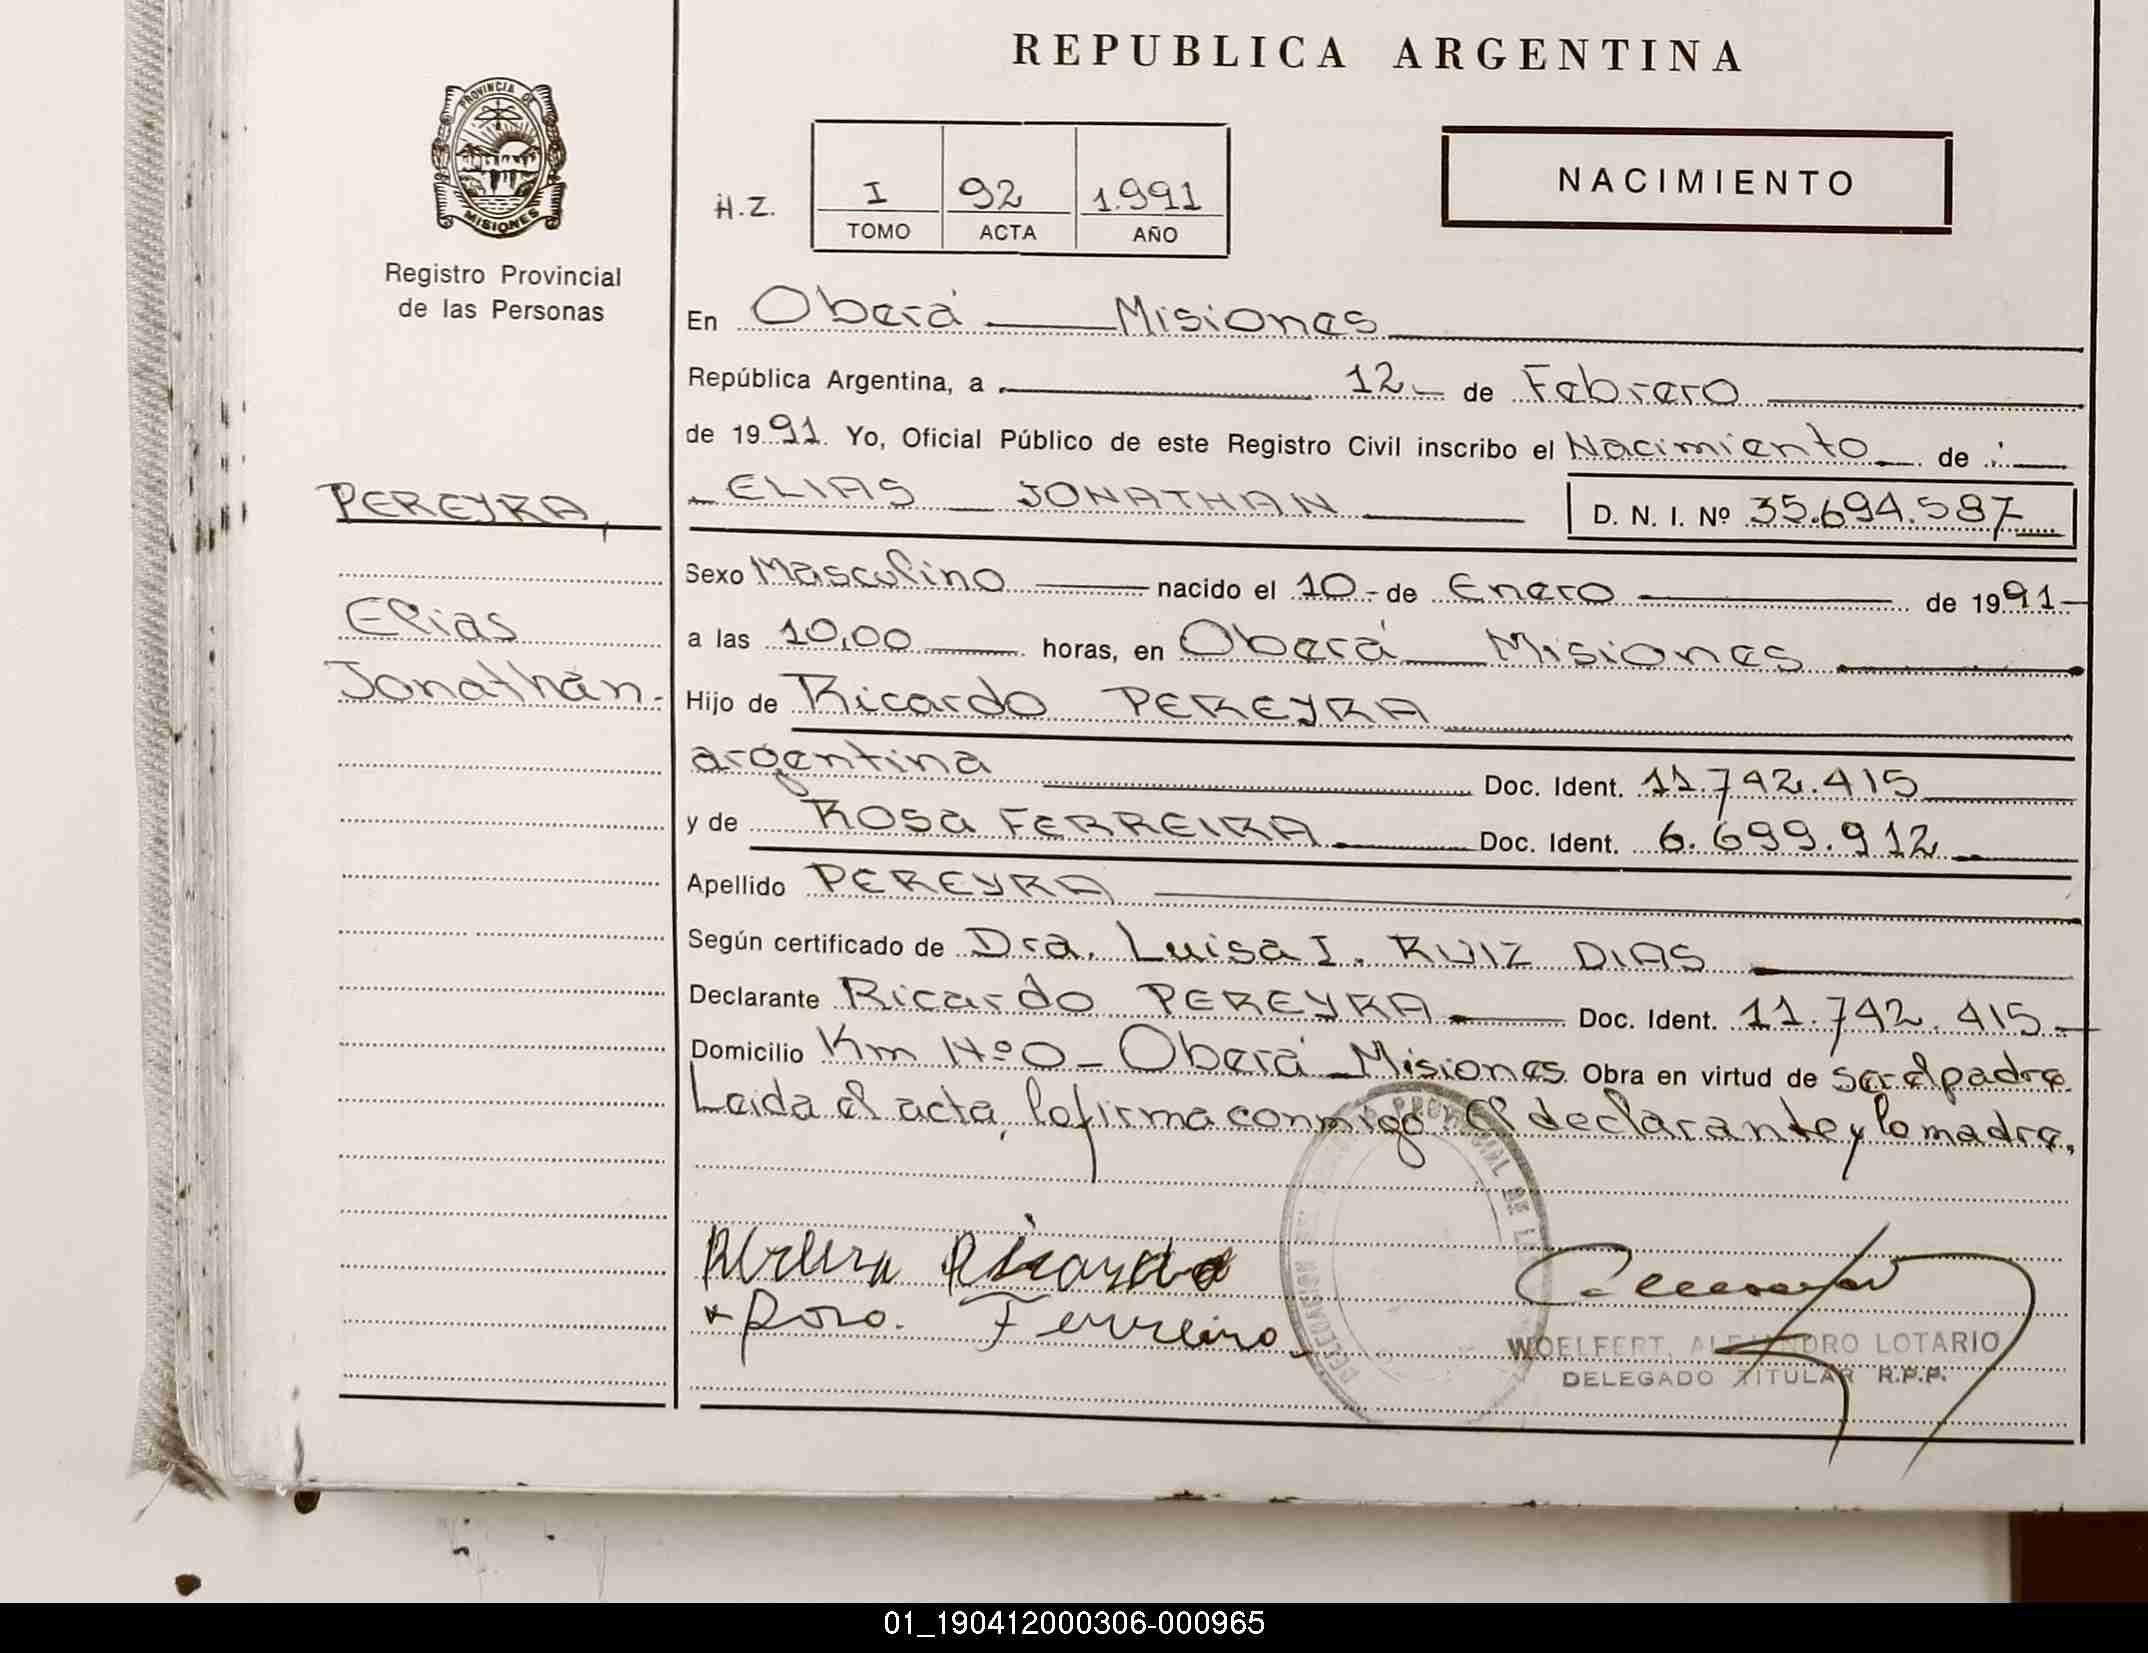 REPUBLICA ARGENTINA
PROVINCIA DE
MISIONES
Registro Provincial
de las Personas
H.Z.
I 92 1.991
TOMO ACTA AÑO
NACIMIENTO
En Oberá Misiones
República Argentina, a 12 de Febrero
de 1991. Yo, Oficial Público de este Registro Civil inscribo el Nacimiento de :
PEREYRA,
ELIAS JONATHAN D. N. I. Nº 35.694.587
Sexo Masculino nacido el 10 - de Enero de 1991
Elias
a las 10,00 horas, en Oberá Misiones
Jonathan.
Hijo de Ricardo PEREYRA
argentina Doc. Ident. 11.742.415
y de Rosa FERREIRA Doc. Ident. 6.699.912
Apellido PEREYRA
Según certificado de Dra. Luisa I. RUIZ DIAS
Declarante Ricardo PEREYRA Doc. Ident. 11.742.415
Domicilio Km Nº 0 - Oberá Misiones Obra en virtud de ser el padre
Leida el acta, la firma conmigo el declarante y la madre.
Ricardo
Ferreira
WOELFERT, ALEJANDRO LOTARIO
DELEGADO TITULAR R.P.P.
01_190412000306-000965